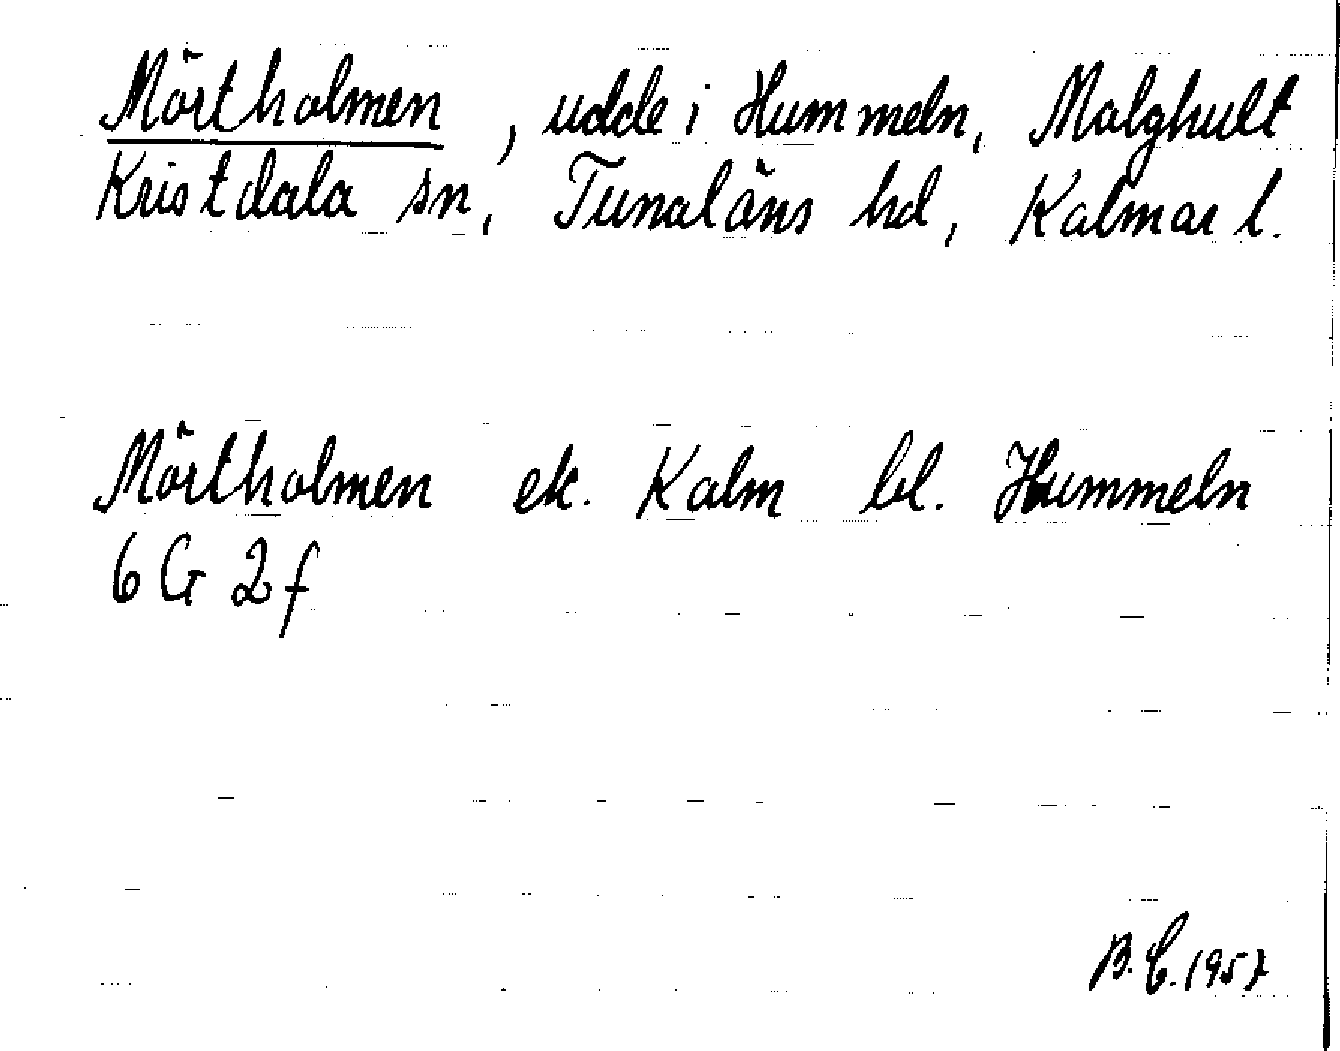 Mörtholmen, udde i Hummeln, Malghult
Kristdala sn, Tunaläns hd, Kalmar l.
Mörtholmen ek. Kalm bl. Hummeln
6 G 2f
B.C. 1957